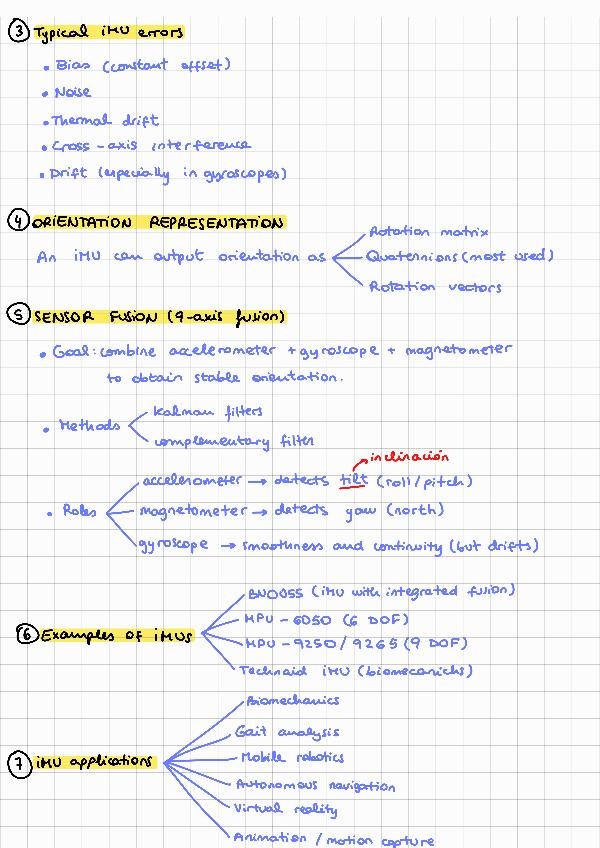 ③ Typical iMU errors
• Bias (constant offset)
• Noise
• Thermal drift
• Cross-axis interference
• Drift (especially in gyroscopes)
④ ORIENTATION REPRESENTATION
Rotation matrix
An iMU can output orientation as
Quaternions (most used)
Rotation vectors
⑤ SENSOR FUSION (9-axis fusion)
• Goal: combine accelerometer + gyroscope + magnetometer
to obtain stable orientation.
• Methods
Kalman filters
complementary filter
inclinación
• Roles
accelerometer → detects tilt (roll/pitch)
magnetometer → detects yaw (north)
gyroscope → smoothness and continuity (but drifts)
⑥ Examples of iMUs
BNO055 (iMU with integrated fusion)
MPU-6050 (6 DOF)
MPU-9250/9265 (9 DOF)
Technaid iMU (biomecanichs)
⑦ iMU applications
Biomechanics
Gait analysis
Mobile robotics
Autonomous navigation
Virtual reality
Animation / motion capture